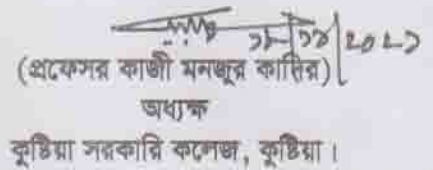 ১৮|১১|২০২১
(প্রফেসর কাজী মনজুর কাদির)
অধ্যক্ষ
কুষ্টিয়া সরকারি কলেজ, কুষ্টিয়া।